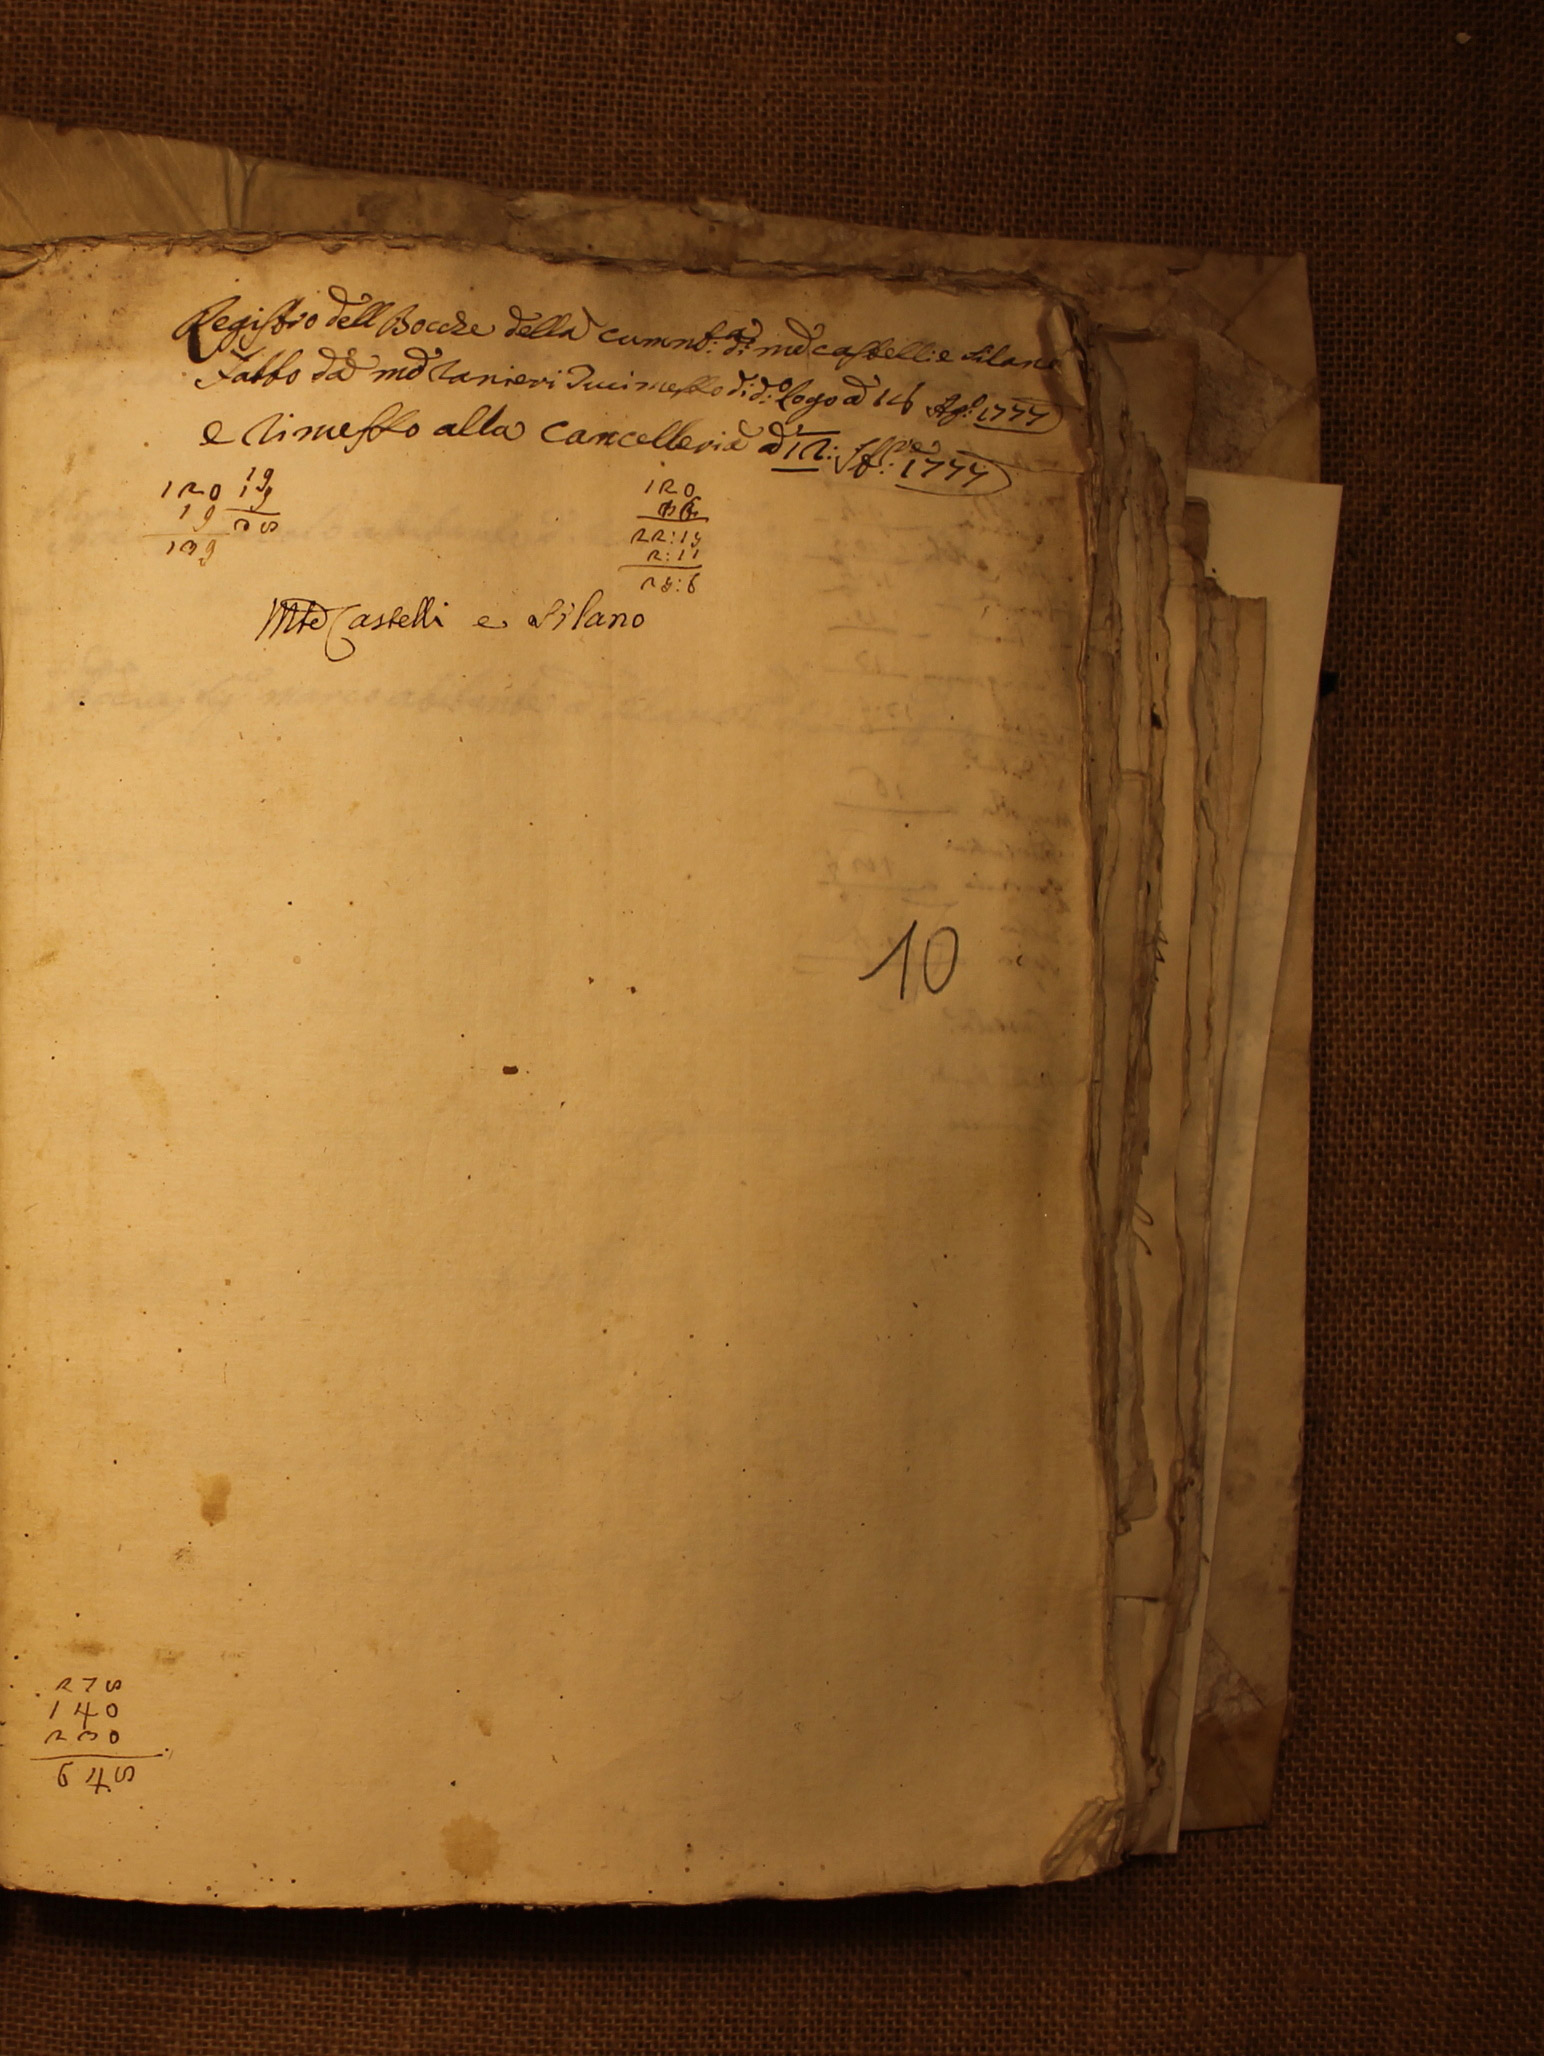 Registro dell Bocche della cummt: di mte castelli e Silano
Fatto da me Ranieri Duci messo di do: logo a 16 Ago: 1777
e Rimesso alla Cancelleria a 12: 1777
120 19
19 19
139 38
120
22:15
2:11
25:6
Mte Castelli e Silano
10
275
140
230
645